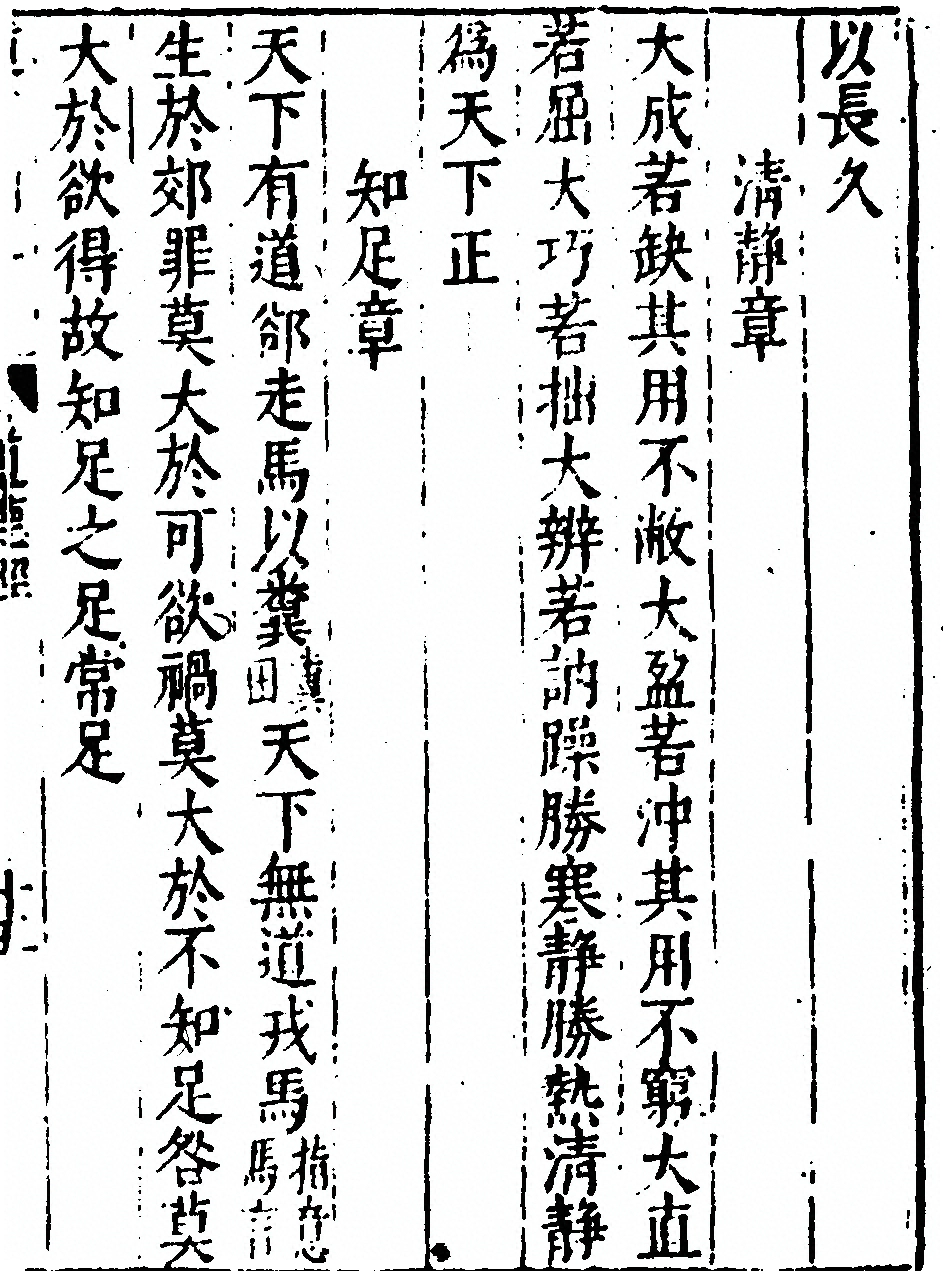 以長久
清靜章
大成若缺其用不敝大盈若沖其用不窮大直
若屈大巧若拙大辯若訥躁勝寒靜勝熱清靜
爲天下正
知足章
天下有道郤走馬以糞糞田天下無道戎馬指意馬言
生於郊罪莫大於可欲禍莫大於不知足咎莫
大於欲得故知足之足常足